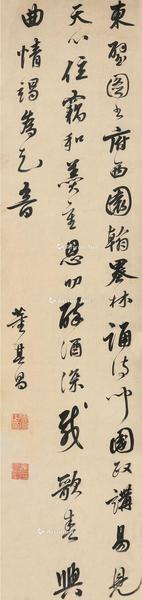 東壁圖書府西園翰墨林誦詩聞國政講易見
天心位竊和羹重恩叨醉酒深載歌春興
曲情竭為知音
董其昌